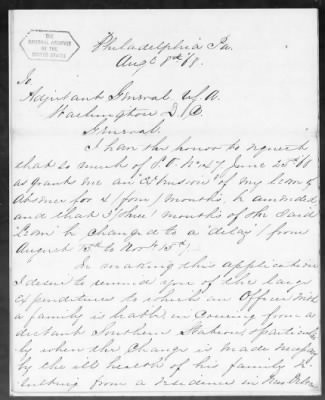 THE
NATIONAL ARCHIVES
OF THE
UNITED STATES
Philadelphia Pa.
Augt 8th/68.
To
Adjutant General U.S.A.
Washington D.C.
General.
I have the honor to request
that so much of S.O. No 147 June 20th/68
as grants me an extension of my leave of
absence for 4 (four) months, be amended,
and that 3 (three) months of the said
leave be changed to a "delay" from
August 15th to Novr 15th,
In making this application
I desire to remind you of the large
expenditures to which an Officer with
a family is liable in coming from a
distant Southern Station, particular-
ly when the change is made necessary
by the ill health of his family re-
sulting from a residence in New Orleans